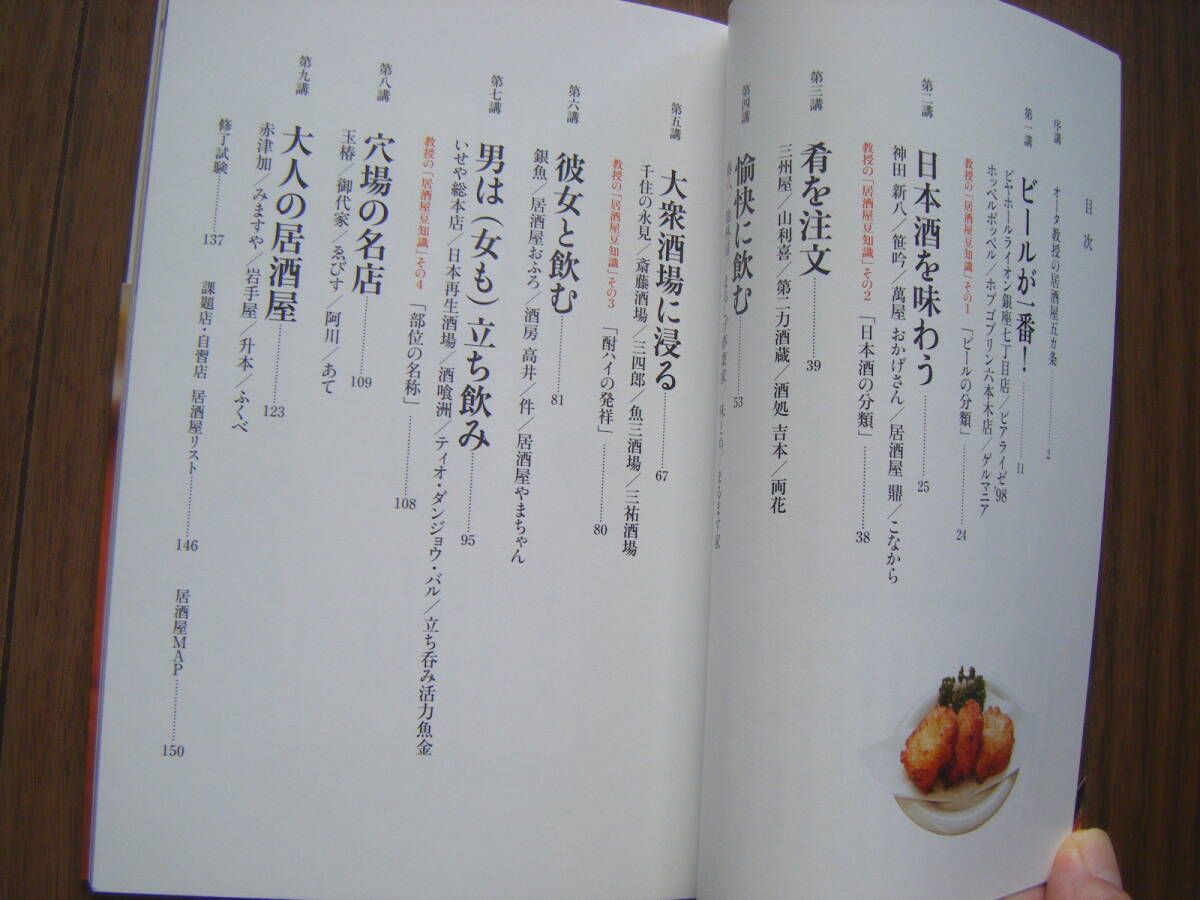 目次
序講 オータ教授の居酒屋五カ条 2
第一講 ビールが一番! 11
ビヤホールライオン銀座七丁目店/ビアライゼ'98
ホッペルポッペル/ホブゴブリン六本木店/ゲルマニア
教授の「居酒屋豆知識」その1 「ビールの分類」 24
第二講 日本酒を味わう 25
神田 新八/笹吟/萬屋 おかげさん/居酒屋 鼎/こなから
教授の「居酒屋豆知識」その2 「日本酒の分類」 38
第三講 肴を注文 39
三州屋/山利喜/第二力酒蔵/酒処 吉本/両花
第四講 愉快に飲む 53
まるます家
第五講 大衆酒場に浸る 67
千住の永見/斎藤酒場/三四郎/魚三酒場/三祐酒場
教授の「居酒屋豆知識」その3 「酎ハイの発祥」 80
第六講 彼女と飲む 81
銀魚/居酒屋おふろ/酒房 高井/件/居酒屋やまちゃん
第七講 男は(女も)立ち飲み 95
いせや総本店/日本再生酒場/酒喰洲/ティオ・ダンジョウ・バル/立ち呑み活力魚金
教授の「居酒屋豆知識」その4 「部位の名称」 108
第八講 穴場の名店 109
玉椿/御代家/ゑびす/阿川/あて
第九講 大人の居酒屋 123
赤津加/みますや/岩手屋/升本/ふくべ
修了試験 137
課題店・自習店 居酒屋リスト 146
居酒屋MAP 150